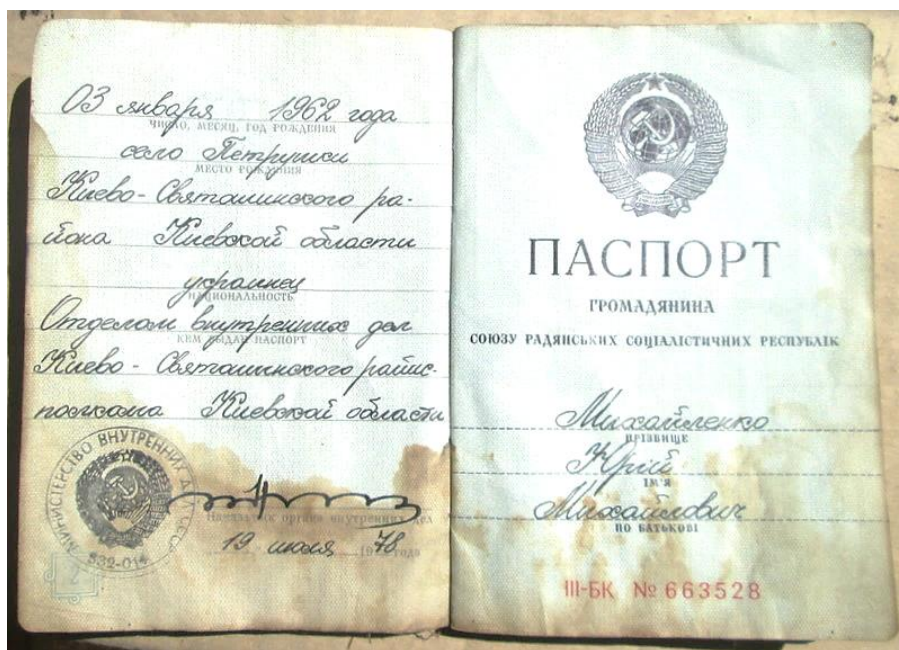 03 января 1962 года
ЧИСЛО, МЕСЯЦ, ГОД РОЖДЕНИЯ
село Петрушки
МЕСТО РОЖДЕНИЯ
Киево-Святошинского ра-
йона Киевской области
украинец
НАЦИОНАЛЬНОСТЬ
Отделом внутренних дел
КЕМ ВЫДАН ПАСПОРТ
Киево-Святошинского райис-
полкома Киевской области
МИНИСТЕРСТВО ВНУТРЕННИХ ДЕЛ УССР
532-014
Начальник органа внутренних дел
19 июля 1978 года
2
ПАСПОРТ
ГРОМАДЯНИНА
СОЮЗУ РАДЯНСЬКИХ СОЦІАЛІСТИЧНИХ РЕСПУБЛІК
Михайленко
ПРІЗВИЩЕ
Юрій
ІМ'Я
Михайлович
ПО БАТЬКОВІ
III-БК № 663528